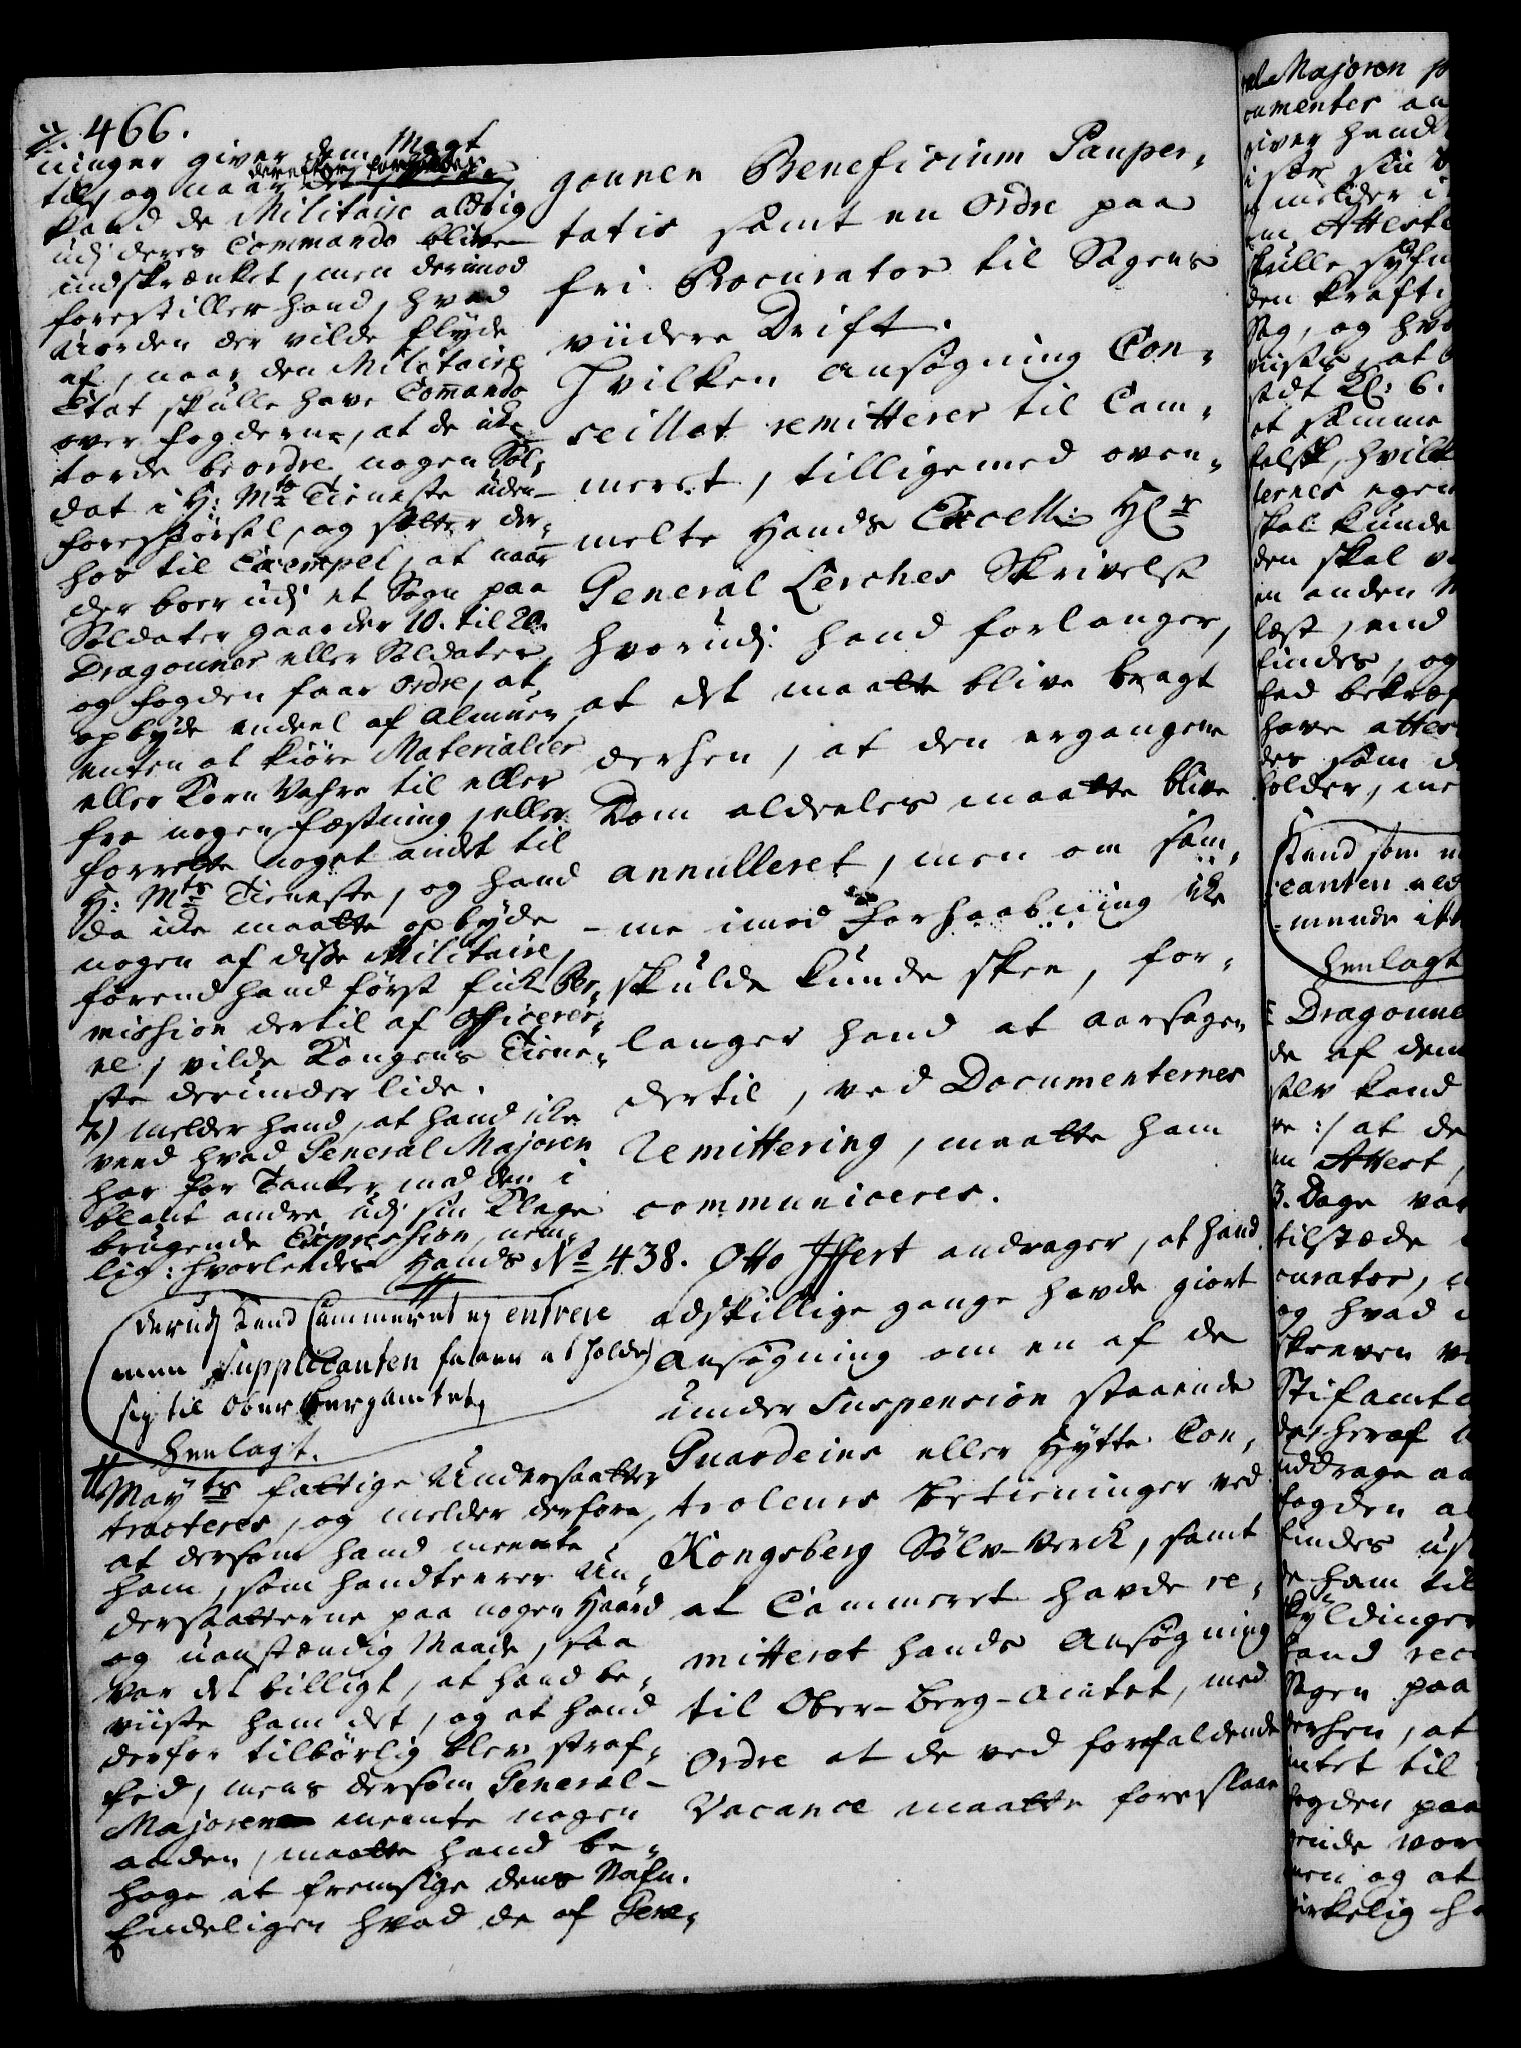 466.
ninger giver dem Magt
til, og naar derefter forholdes
kand de Militaire aldrig
udj deres Commando blive
indskrænket, men derimod
forestiller hand, hvad
Uorden der vilde flyde
af, naar den Militaire
Etat skulle have Commando
over fogderne, at de icke
torde beordre nogen Sol-
dat i H: Mts Tieneste uden
forespørsel, og sætter der-
hos til Exempel, at naar
der boer udj et Sogn paa
Soldater gaarder 10. til 20.
Dragouner eller Soldater,
og fogden faar Ordre, at
opbyde endeel af Almuen,
enten at kiøre Materialier
eller Korn Vahre til eller
fra nogen fæstning, eller
forrette noget andet til
H: Mts Tieneste, og hand
da icke maatte opbyde
nogen af disse Militaire,
førend hand først fick Per-
mission dertil af Officerer-
ne, vilde Kongens Tiene-
ste derunder lide.
7) melder hand, at hand icke
veed hvad General Majoren
har for Tanker med den i
blant andre udj sin Klage
brugende Expression, nem-
lig: hvorledes Hands
derudj kand Cammeret ej entrere
men Supplicanten faaer at holde
sig til Ober Bergamtet,
henlagt.
Mayts fattige Undersaatter
tracteres, og melder derfore,
at dersom hand meente
ham, som handterer Un-
dersaatterne paa nogen Haard
og uanstændig Maade, saa
var det billigt, at hand be-
viiste ham det, og at hand
derfor tilbørlig blev straf-
fed, mens dersom General-
Majoren meente nogen
anden, maatte hand be-
hage at fremsige dens Nafn.
Endeligen hvad de af Gene-
gounen Beneficium Pauper-
tatis samt en Ordre paa
fri Procurator til Sagens
viidere Drift.
Hvilken ansøgning Con-
seillet remitterer til Cam-
meret, tilligemed oven-
melte Hands Excell: Hr
General Lerches Skrivelse
hvorudj hand forlanger,
at det maatte blive bragt
derhen, at den ergangene
Dom aldeeles maatte blive
annulleret, men om sam-
me imod Forhaabning icke
skulde kunde skee, for-
langer hand at aarsagen
dertil, ved Documenternes
Remittering, maatte ham
communiceres.
No 438. Otto Iffert andrager, at hand
adskillige gange havde giort
Ansøgning om en af de
under Suspension staaende
Guardeins eller Hytte Con-
troleurs betieninger ved
Kongsberg Sølv-Verck, samt
at Cammeret havde re-
mitteret hands Ansøgning
til Ober-Berg-Amtet, med
Ordre at de ved forefaldende
Vacance maatte foreslaae
Majoren
giver hand
melder
skulle
den krafti
Sag, og
at samme
hvilk
ternes egen
skal kunde
den skal
en anden
læst, end
findes, og
have attes
des som
holder, me
Kand som
canten
henlagt
Dragoune
de af dem
selv kand
re :/ at de
en Attest,
3. Dage
tilstæde
curator,
og hvad
skreven
Stifamt
des heraf
uddrage
fogden
findes
de ham til
kyldinger
hand rec
Sagen paa
derhen, at
intet til
fogden paa
men og at
virkelig